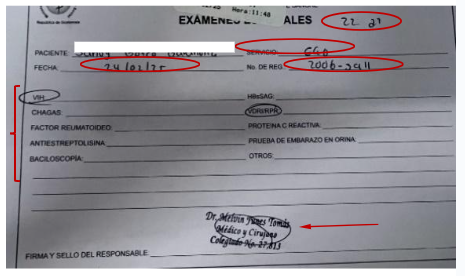 República de Guatemala
Hora:11:48
EXÁMENES ALES 22
PACIENTE:
SERVICIO:
FECHA: 24/02/25 No. DE REG: 2006-
VIH: HBsSAG:
CHAGAS: VDRl/RPR:
FACTOR REUMATOIDEO: PROTEINA C REACTIVA:
ANTIESTREPTOLISINA: PRUEBA DE EMBARAZO EN ORINA:
BACILOSCOPÍA: OTROS:
Dr. Melvin Funes Tomás
Médico y Cirujano
Colegiado No. 27,813
FIRMA Y SELLO DEL RESPONSABLE: